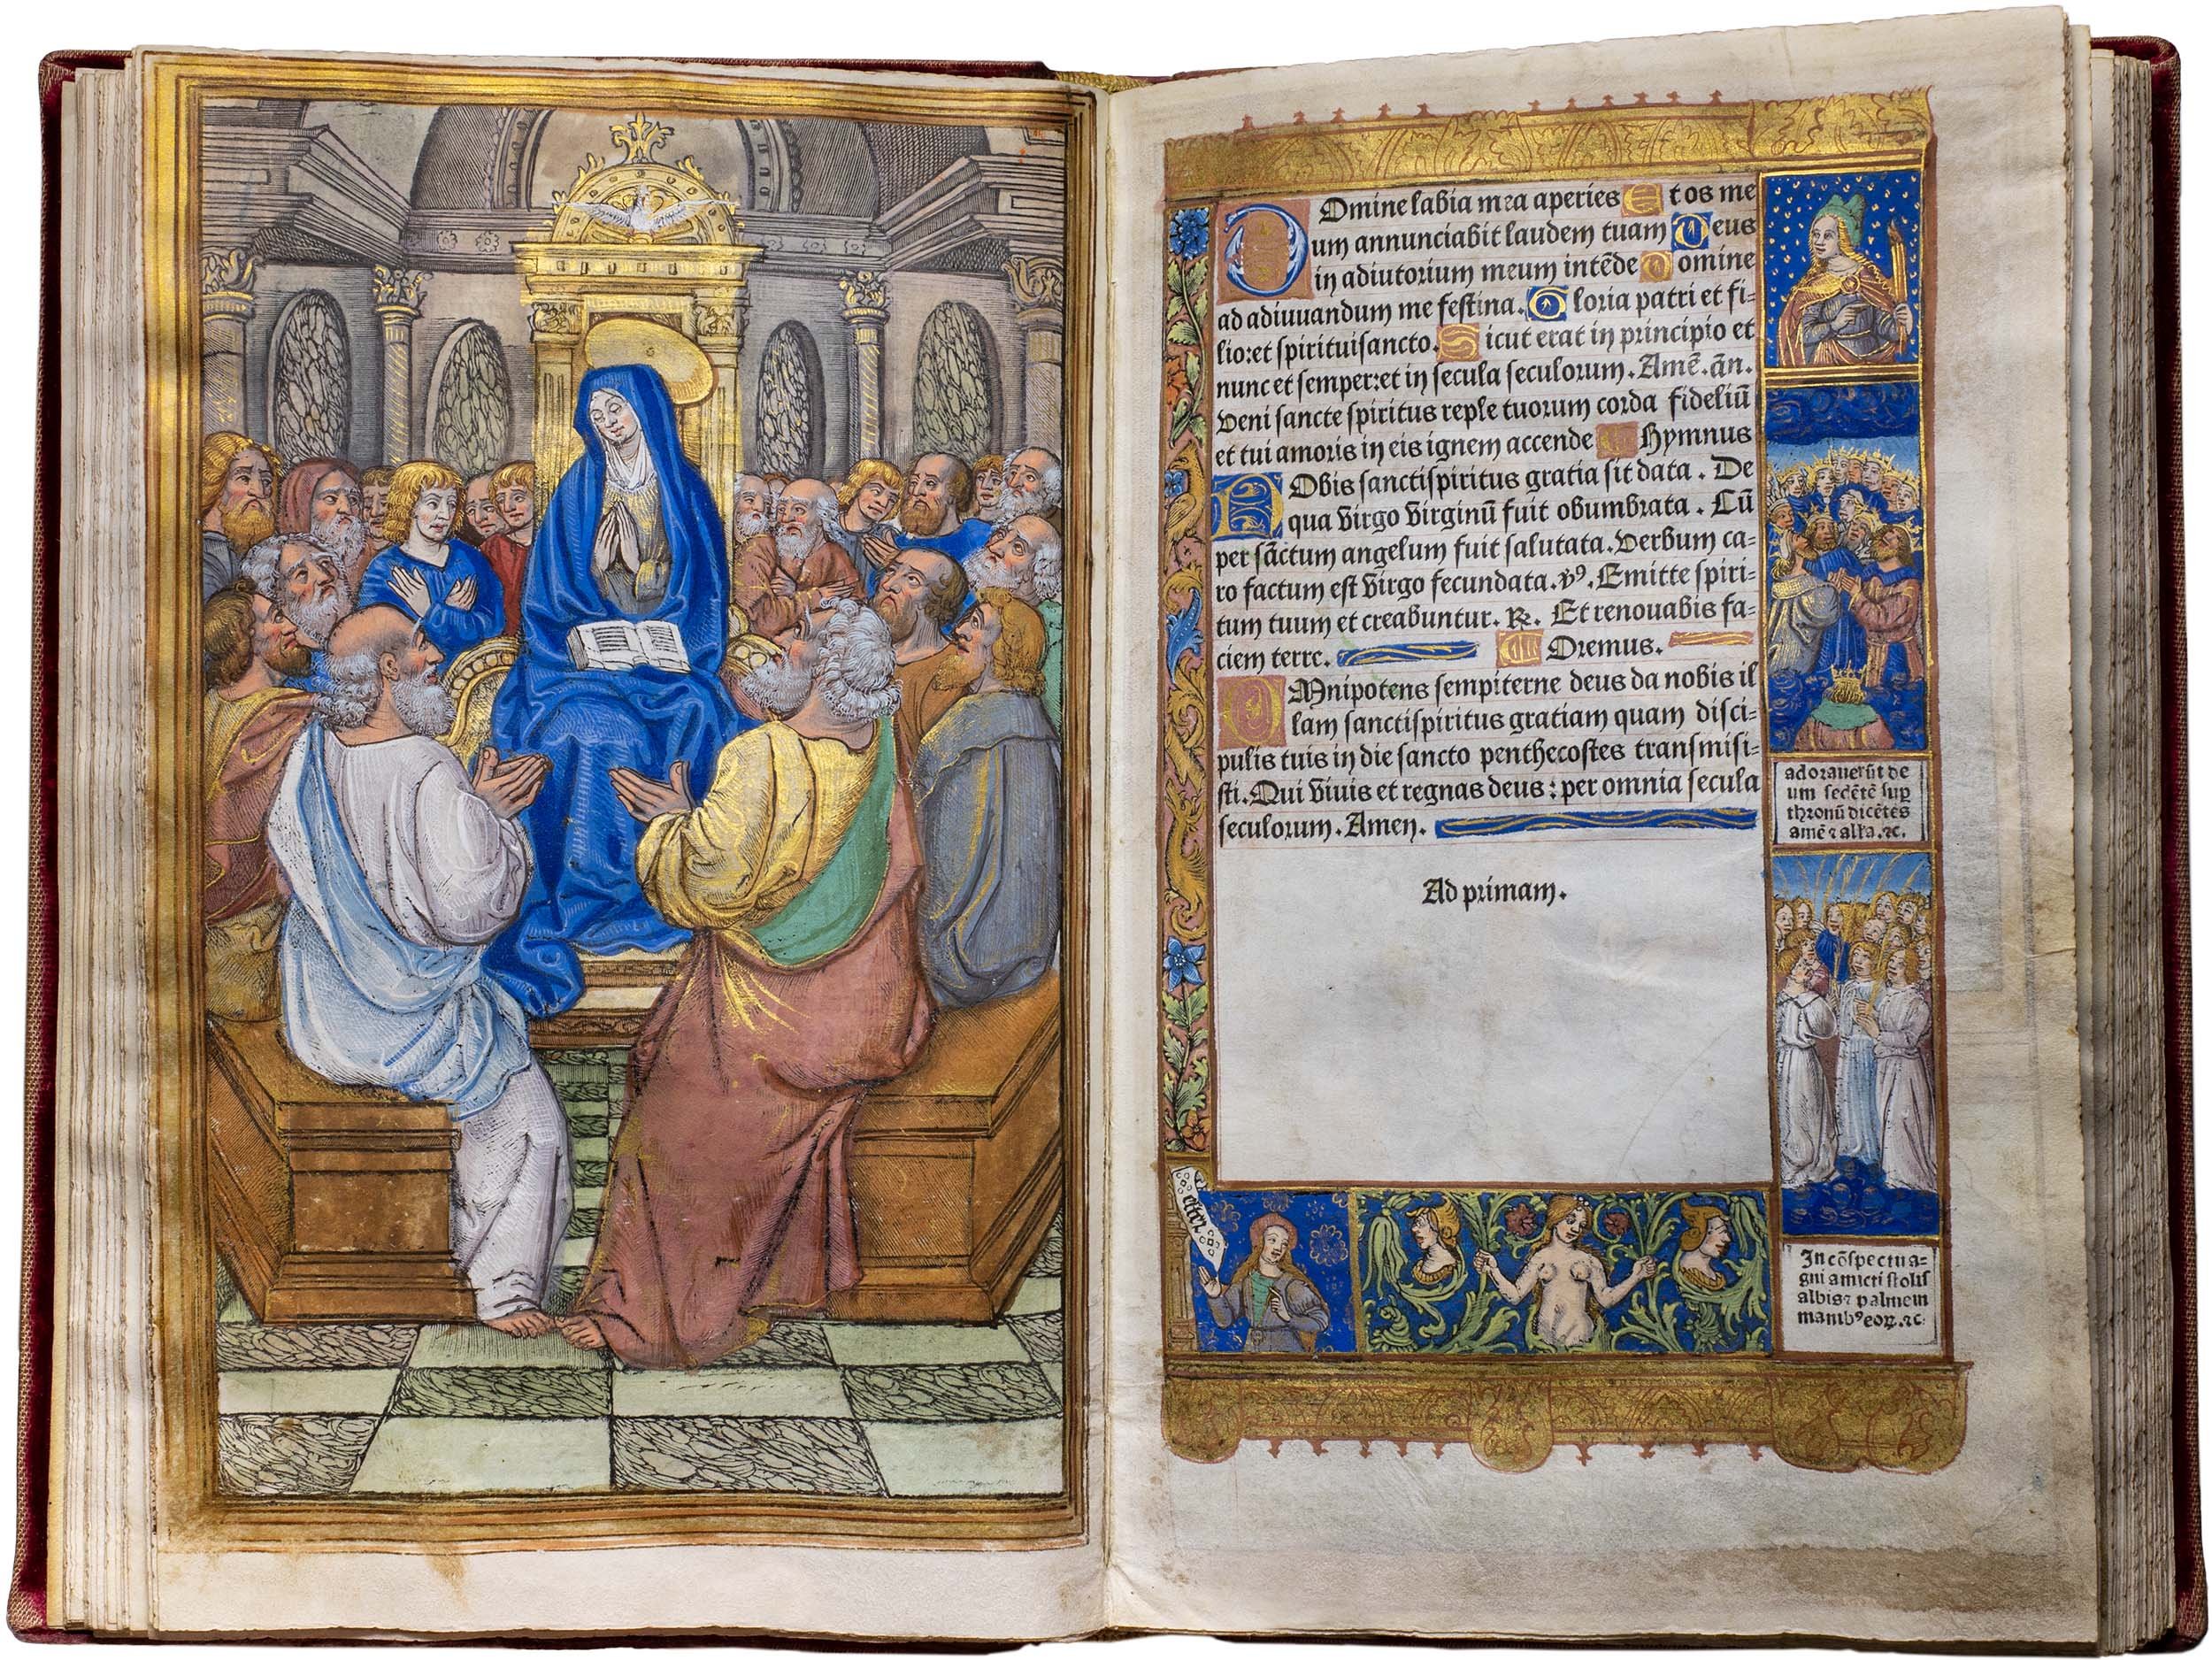 Domine labia mea aperies Et os me
um annunciabit laudem tuam Deus
in adiutorium meum intēde Domine
ad adiuuandum me festina. Gloria patri et fi=
lio:et spirituisancto. Sicut erat in principio et
nunc et semper:et in secula seculorum. Amē. ān.
Veni sancte spiritus reple tuorum corda fideliū
et tui amoris in eis ignem accende Hymnus
Nobis sanctispiritus gratia sit data. De
qua virgo virginū fuit obumbrata. Cū
per sāctum angelum fuit salutata. Verbum ca=
ro factum est virgo fecundata. v̄9. Emitte spiri=
tum tuum et creabuntur. R. Et renouabis fa=
ciem terre. Oremus.
OMnipotens sempiterne deus da nobis il
lam sanctispiritus gratiam quam disci=
pulis tuis in die sancto penthecostes transmisi=
sti. Qui viuis et regnas deus: per omnia secula
seculorum. Amen.
Ad primam.
adorauerūt de
um sedētē sup
thronū dicētes
amē ⁊ alľa. ⁊c.
In cōspectu a=
gni amicti stolis
albis ⁊ palme in
manibꝰ eoꝝ. ⁊c.